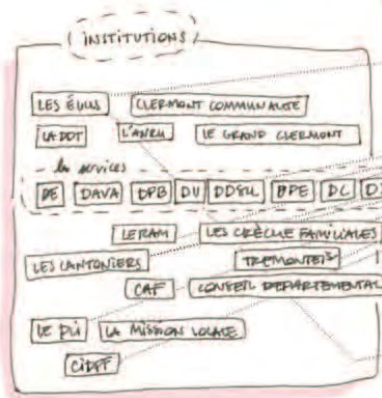 INSTITUTIONS
LES ÉLUS CLERMONT COMMUNAUTÉ
LA DDT L'ANRU LE GRAND CLERMONT
les services
DE DAVA DPB DU DDSU BPE DC D
LE RAM LES CRÈCHE FAMILIALES
LES CANTONIERS TREMONTEIS
CAF CONSEIL DEPARTEMENTAL
LE PLI LA MISSION LOCALE
CIDFF